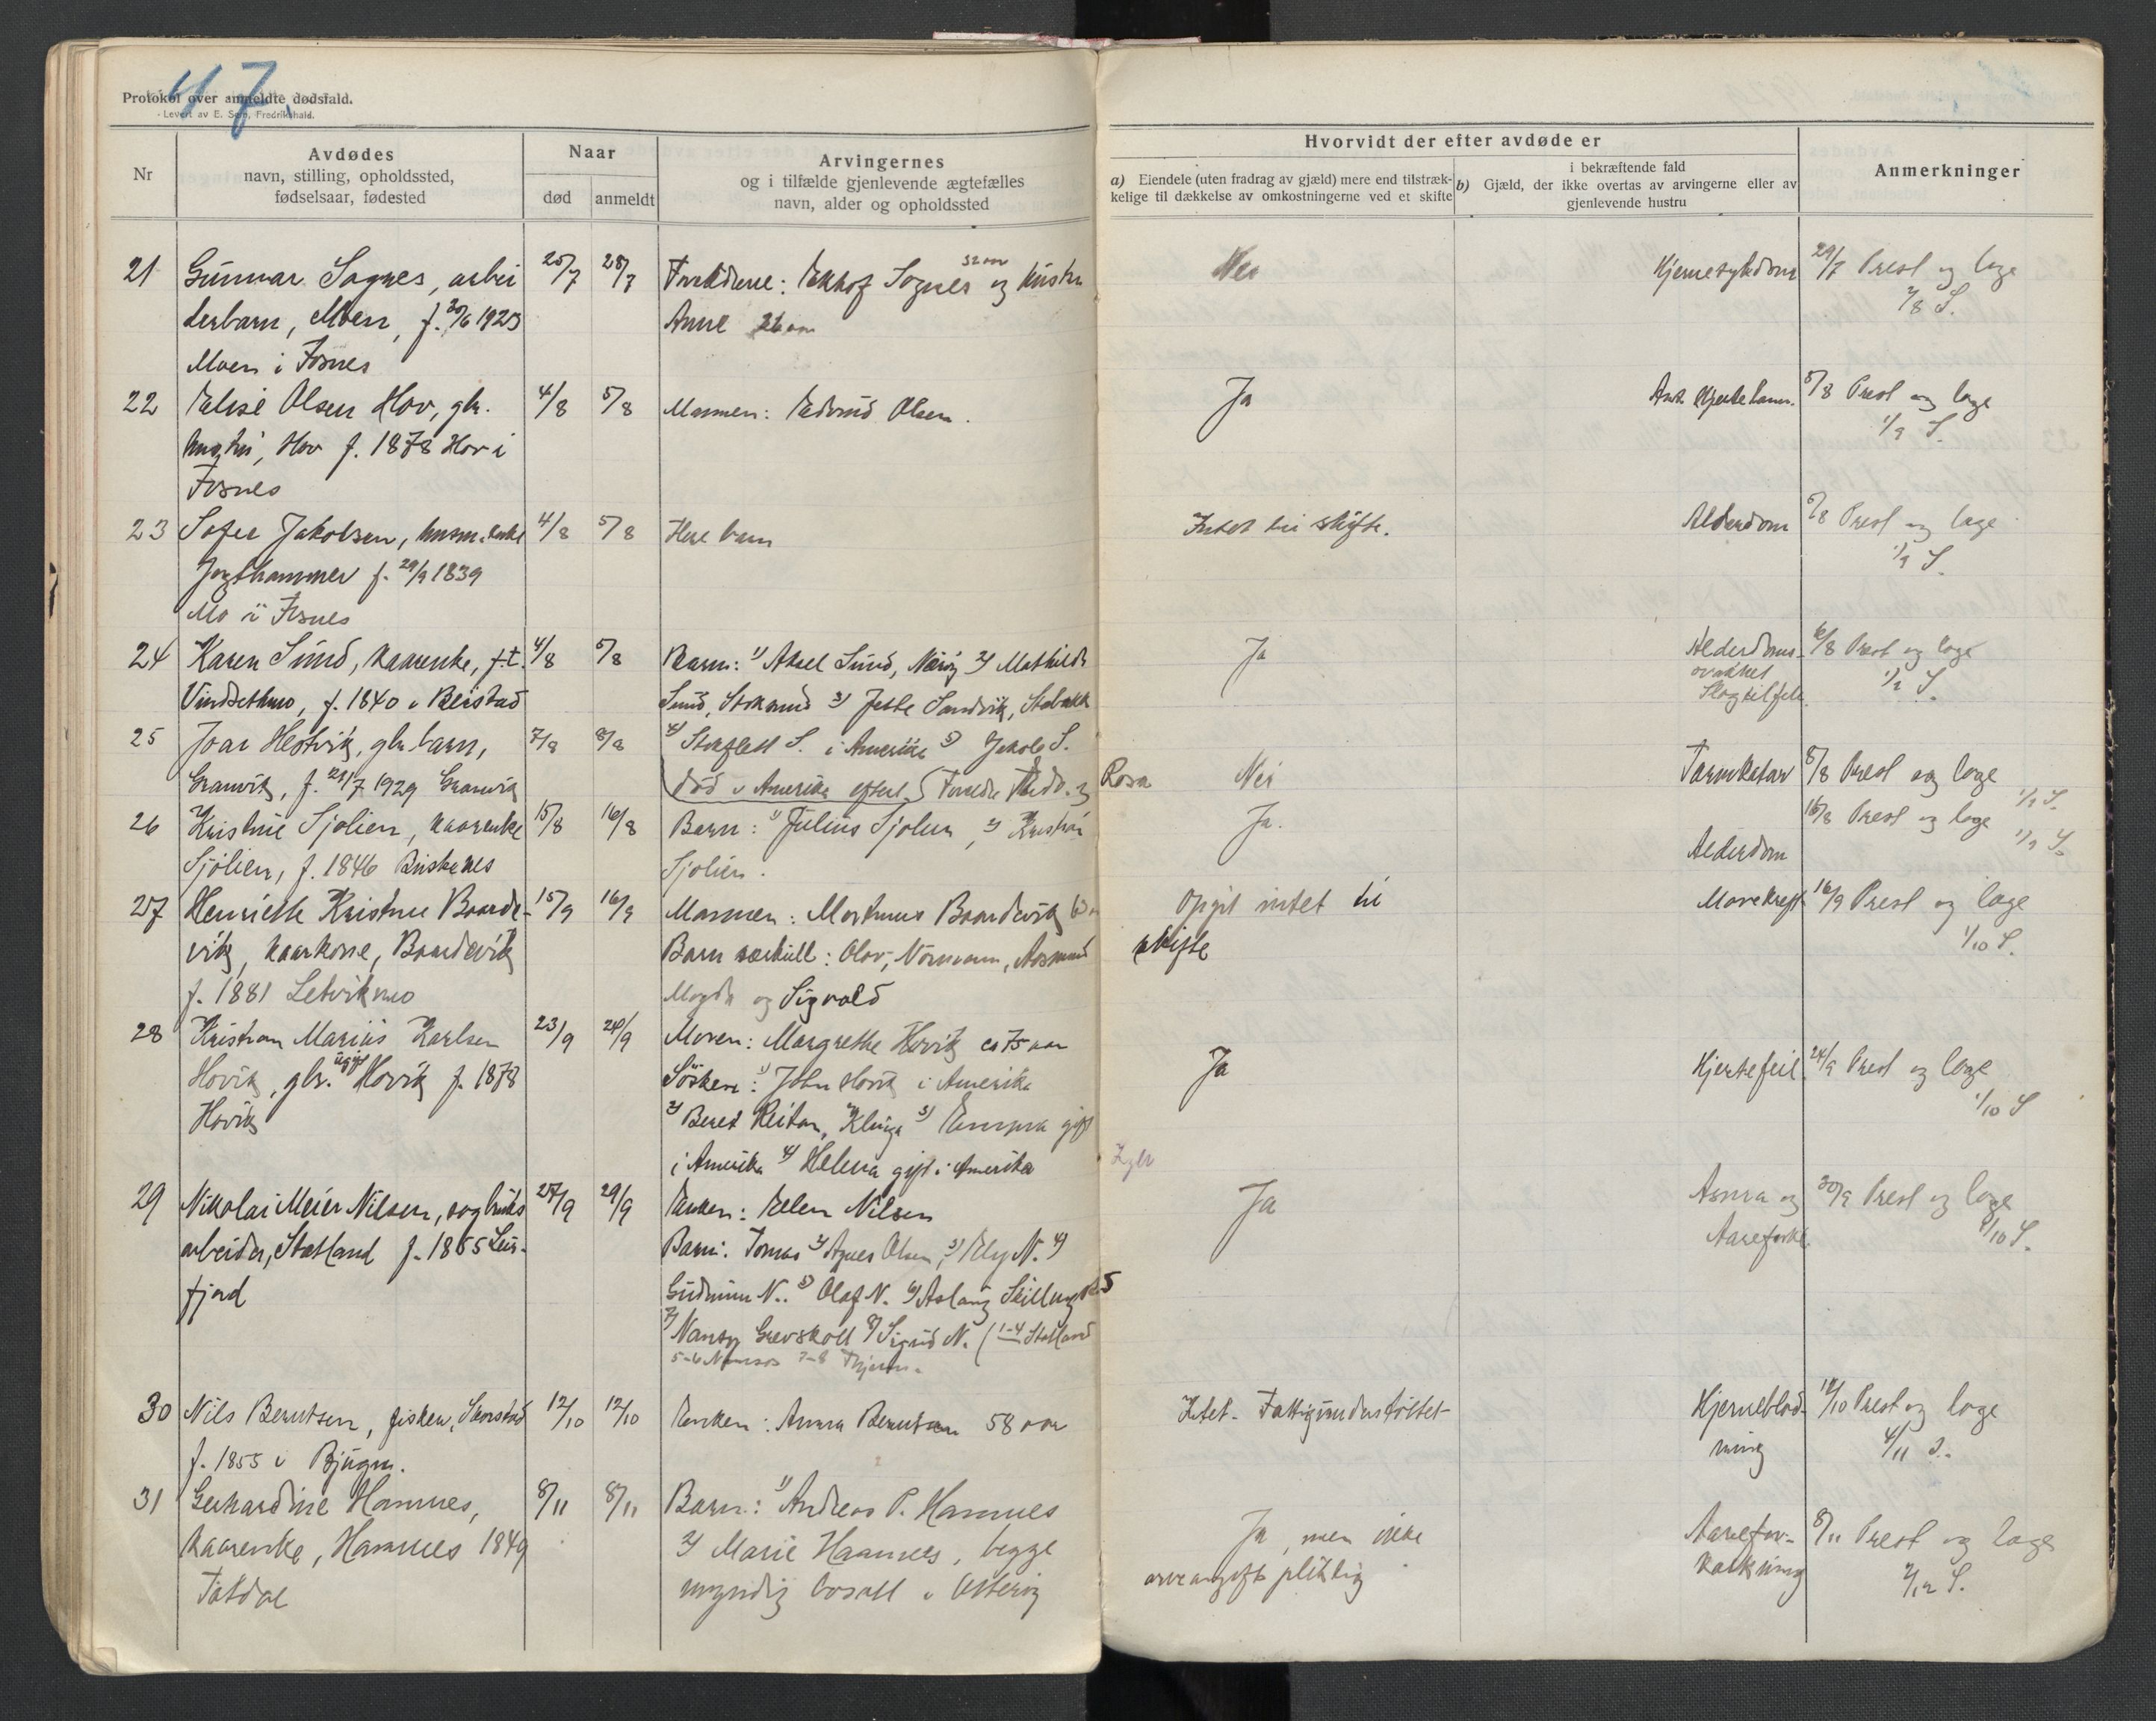 47.
Protokol over anmeldte dødsfald.
Levert av E. Sem, Fredrikshald.
Nr
Avdødes
navn, stilling, opholdssted,
fødselsaar, fødested
Naar
død
anmeldt
Arvingernes
og i tilfælde gjenlevende ægtefælles
navn, alder og opholdssted
Hvorvidt der efter avdøde er
a) Eiendele (uten fradrag av gjæld) mere end tilstræk-
kelige til dækkelse av omkostningerne ved et skifte
i bekræftende fald
b) Gjæld, der ikke overtas av arvingerne eller av
gjenlevende hustru
Anmerkninger
21 Gunnar Sognes, arbei
derbarn, Moen, f. 30/6 1923
Moen i Fosnes
25/7 28/7
Forældrene: Sognes 32 aar og hustru
Anne 26 aar
Nei
Hjernesykdom
29/7 Prest og læge
2/8 S.
22 Elise Olsen Hov, gbr.
hustru, Hov f. 1878 Hov i
Fosnes
4/8 5/8
Mannen: Edvard Olsen.
Ja
Hjertelam.
5/8 Prest og læge
1/9 S.
23 Sofie Jakobsen, husm.enke
Jogthammer f. 29/9 1839
Mo i Fosnes
4/8 5/8
Flere barn
Intet til skifte.
Alderdom
5/8 Prest og læge
1/9 S.
24 Karen Sund, kaarenke, f.t.
Vindsetmo, f. 1840 i Beistad
4/8 5/8
Barn: 1) Aksel Sund, Nærøy 2) Mathilde
Sund, 3) Jette Sandvik, Stabakk
4) S. i Amerika 5) Jakob S.
død i Amerika
Ja
Alderdoms-
svakhet
Slagtilfelle.
6/8 Prest og læge
1/9 S.
25 Joar Hestvik, gbr. barn,
Granvik, f. 21/7 1929 Granvik
7/8 8/8
Foreldre og Rosa
Nei
Tarmkatar
8/8 Prest og læge
1/9 S.
26 Kristine Sjølien, kaarenke
Sjølien, f. 1846
15/8 16/8
Barn: 1) Julius Sjølien, 2) Kristian
Sjølien.
Ja.
Alderdom
16/8 Prest og læge
1/9 S.
27 Henriette Kristine Baarde-
vik, kaarkone, Baardevik
f. 1881 Letvikmo
15/9 16/9
Mannen: Martinus Baardvik
Barn særkull: Olav, Normann, Aasmund
Magda og Sigvald
Opgit intet til
skifte
Mavekreft
16/9 Prest og læge
1/10 S.
28 Kristian Marius Karlsen
Hovik, gbr. ugift Hovik f. 1878
Hovik
23/9 24/9
Moren: Margrethe Hovik ca 75 aar
Søsken: 1) John Hovik i Amerika
2) Beret Reitan, Klinga 3) gift
i Amerika 4) Helena gift i Amerika
Ja
Hjertefeil
24/9 Prest og læge
1/10 S
29 Nikolai Meier Nilsen, sagbruks
arbeider, Statland f. 1865 Leir-
fjord
27/9 29/9
Enken: Elen Nilsen
Barn: Tomas 2) Agnes Olsen, 3) Elly N. 4)
Gudrunn N.. 5) Olaf N. 6) Aslaug
7) Nansy Grevskott 8) Sigrid N. (1-4 Statland
5-6 Namsos 7-8
Ja
Astma og
Aareforkl.
30/9 Prest og læge
8/10 S.
30 Nils Berntsen, fisker, Skorstad
f. 1855 i Bjugn.
12/10 12/10
Enken: Anna Berntsen 58 aar
Intet. Fattigunderstøttet
Hjerneblød-
ning
12/10 Prest og læge
4/11 S.
31 Gerhardine Hamnes,
kaarenke, Hamnes 1849
Tøtdal
8/11 8/11
Barn: 1) Andreas P. Hamnes
2) Marie Haamnes, begge
myndig bosatt i Otterøy
Ja, men ikke
arveavgift pliktig
Aarefor-
kalkning
8/11 Prest og læge
2/12 S.